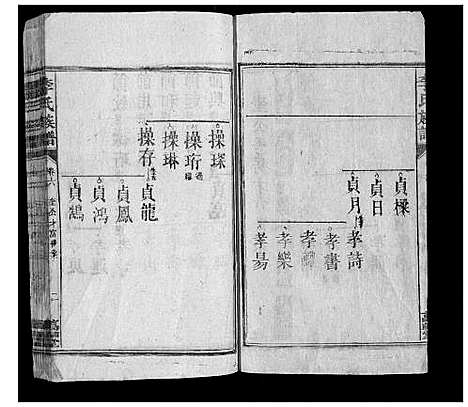 李氏族譜
貞樑
貞日
貞月
孝詩
孝書
孝禮
孝樂
孝易
操琛
操珩
操琳
操存
貞龍
貞鳳
貞鴻
貞鵠
李氏族譜
卷六